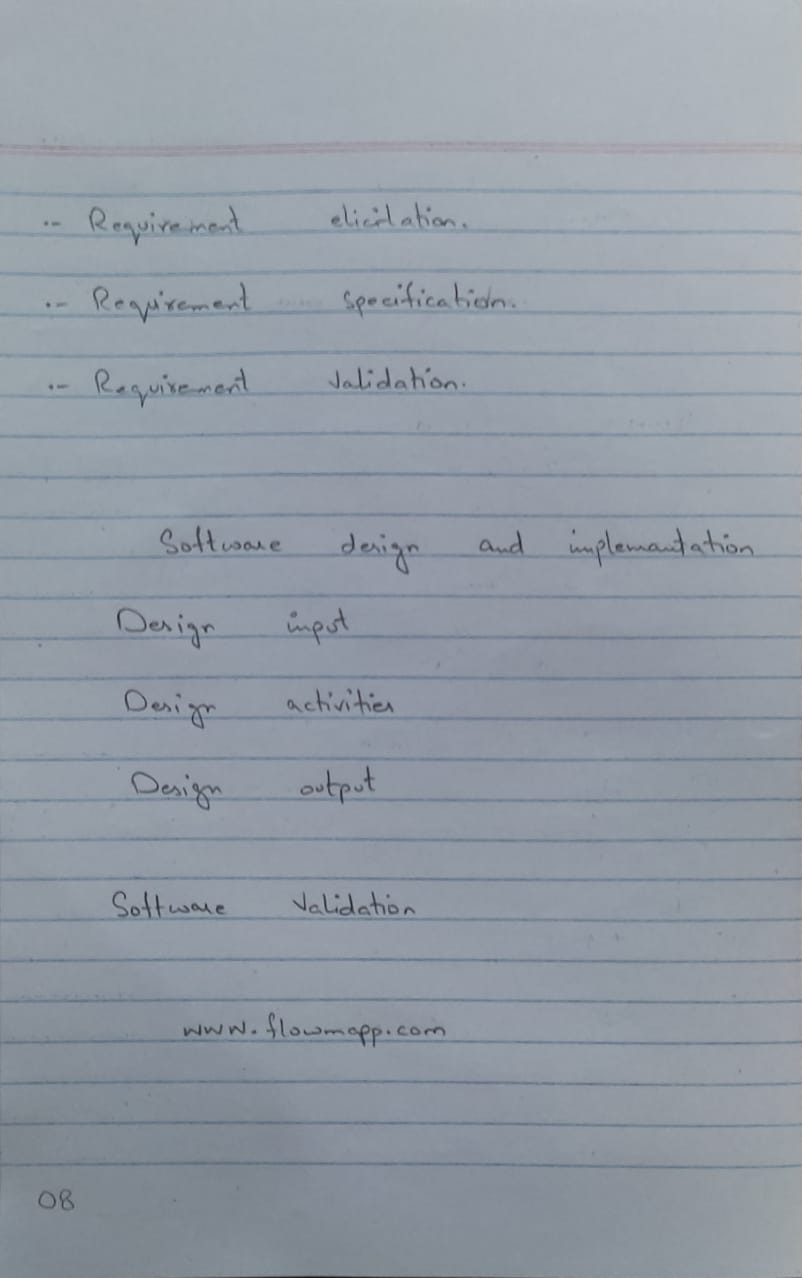 .- Requirement elicitation.
.- Requirement specification.
.- Requirement Validation.
Software design and implemantation
Design input
Design activities
Design output
Software Validation
www.flowmapp.com
08